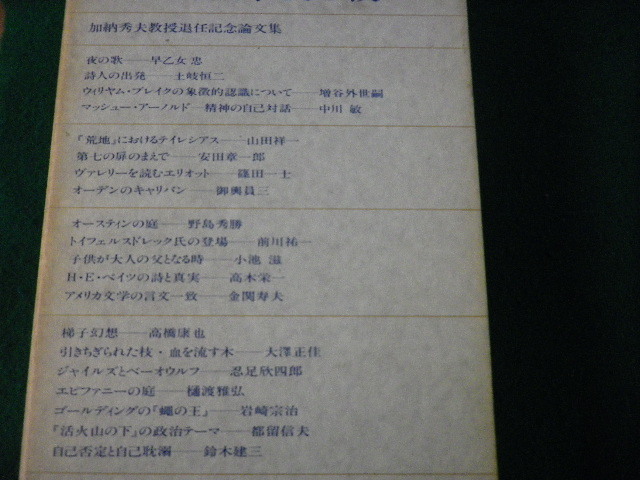 加納秀夫教授退任記念論文集
夜の歌――早乙女 忠
詩人の出発――土岐恒二
ウィリヤム・ブレイクの象徴的認識について――増谷外世嗣
マッシュー・アーノルド――精神の自己対話――中川 敏
『荒地』におけるテイレシアス――山田祥一
第七の扉のまえで――安田章一郎
ヴァレリーを読むエリオット――篠田一士
オーデンのキャリバン――御輿員三
オースティンの庭――野島秀勝
トイフェルスドレック氏の登場――前川祐一
子供が大人の父となる時――小池 滋
H・E・ベイツの詩と真実――高木栄一
アメリカ文学の言文一致――金関寿夫
梯子幻想――高橋康也
引きちぎられた枝・血を流す木――大澤正佳
ジャイルズとベーオウルフ――忍足欣四郎
エピファニーの庭――樋渡雅弘
ゴールディングの『蠅の王』――岩崎宗治
『活火山の下』の政治テーマ――都留信夫
自己否定と自己耽溺――鈴木建三